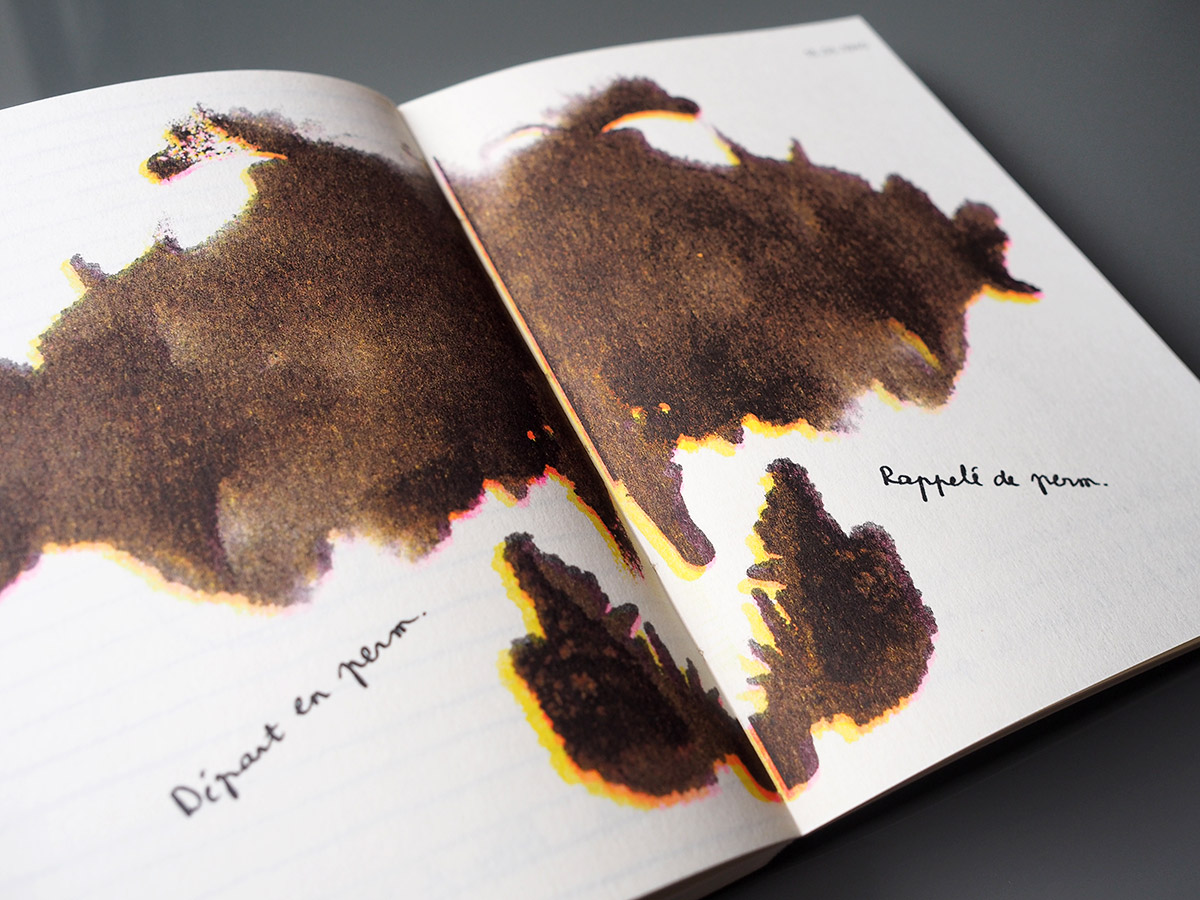 Départ en perm.
Rappelé de perm.